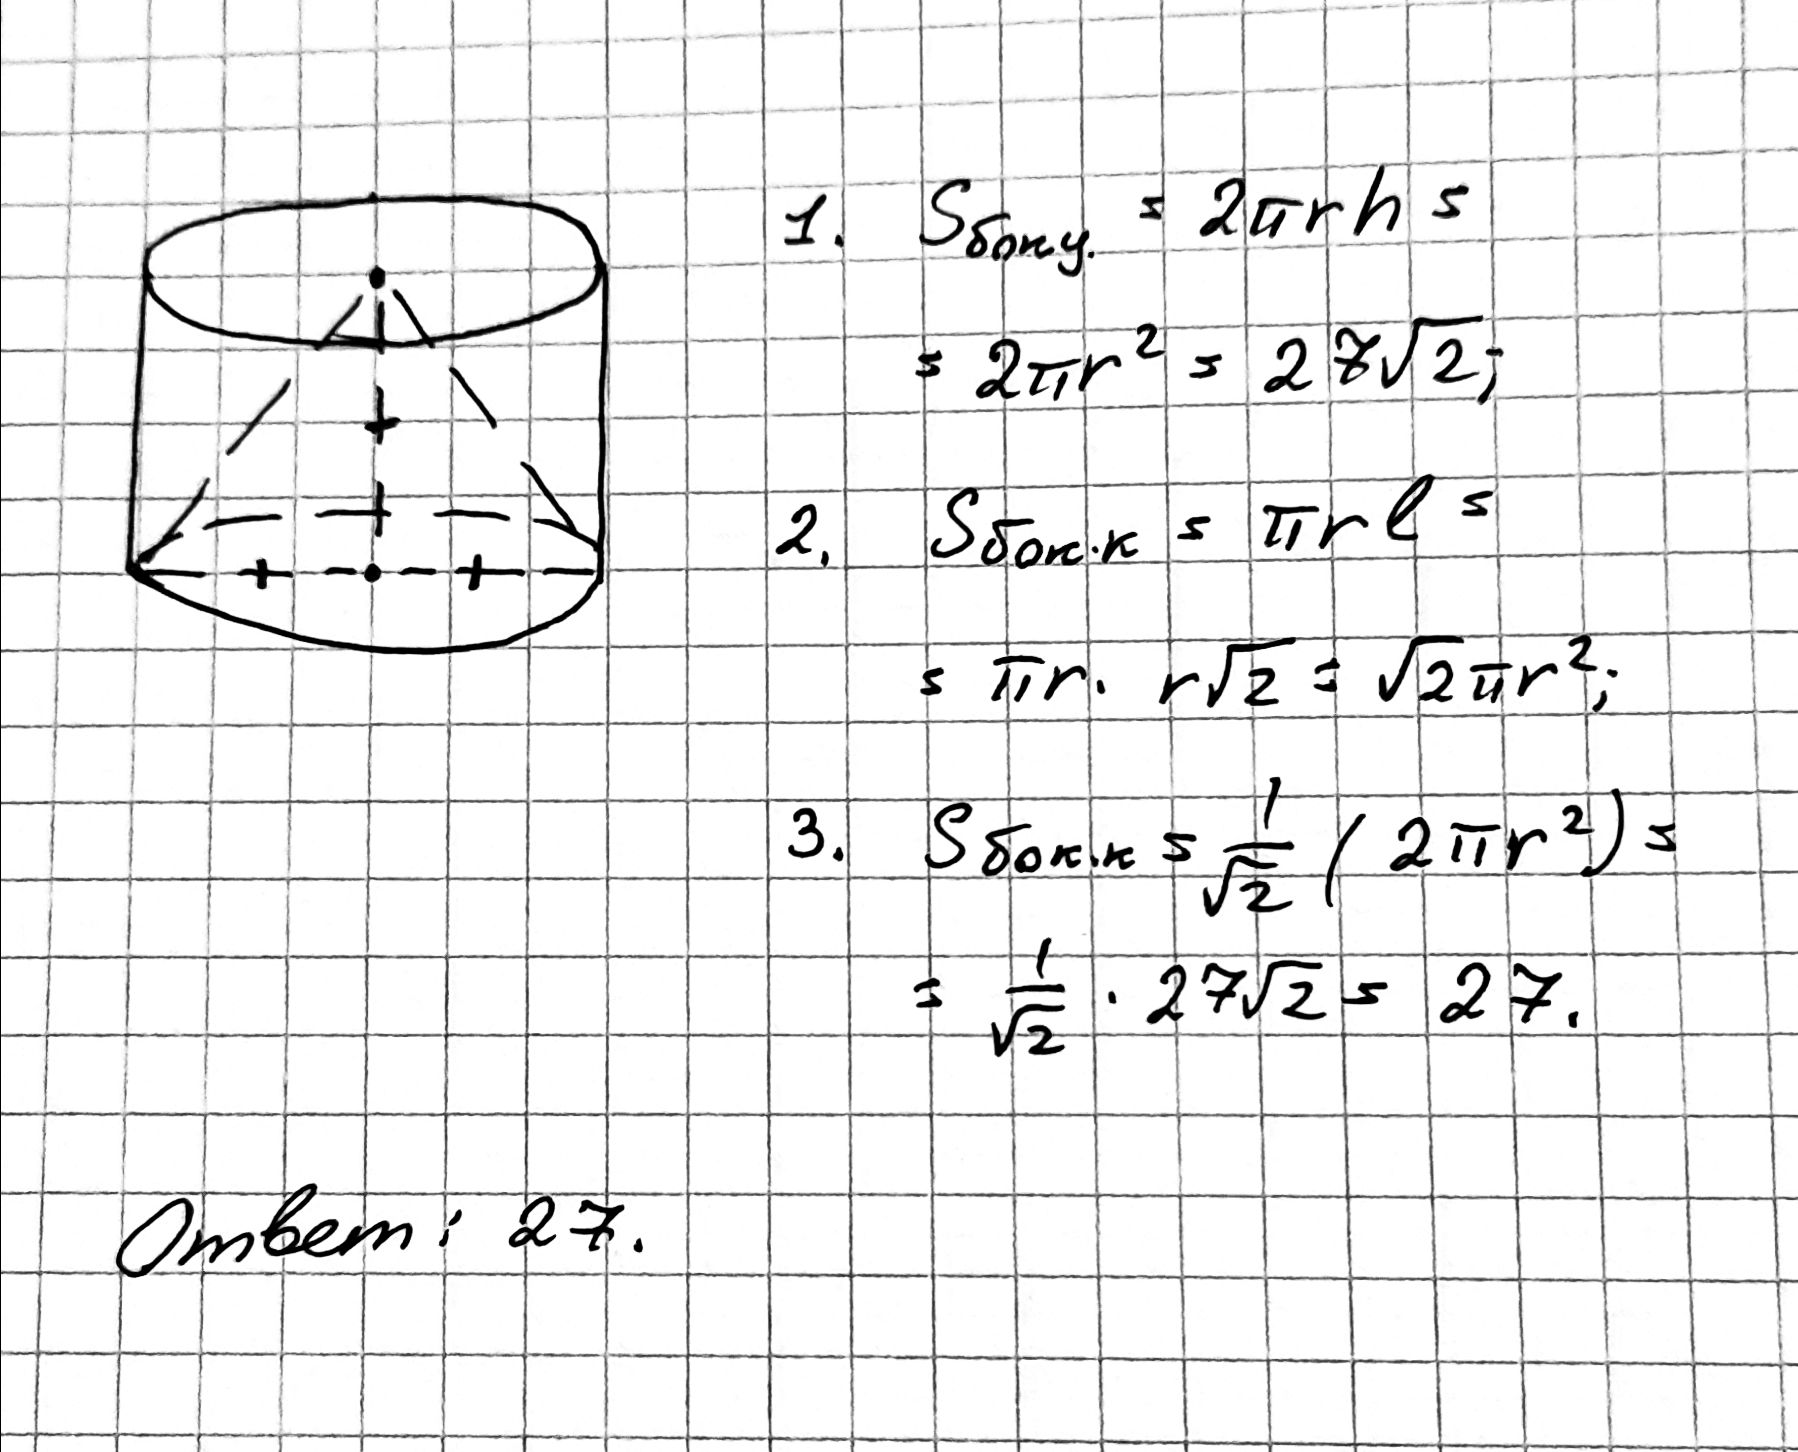 1. Sбок ц. = 2πrh =
= 2πr² = 27√2;
2. Sбок.к = πrl =
= πr · r√2 = √2πr²;
3. Sбок.к = 1/√2 (2πr²) =
= 1/√2 · 27√2 = 27.
Ответ: 27.